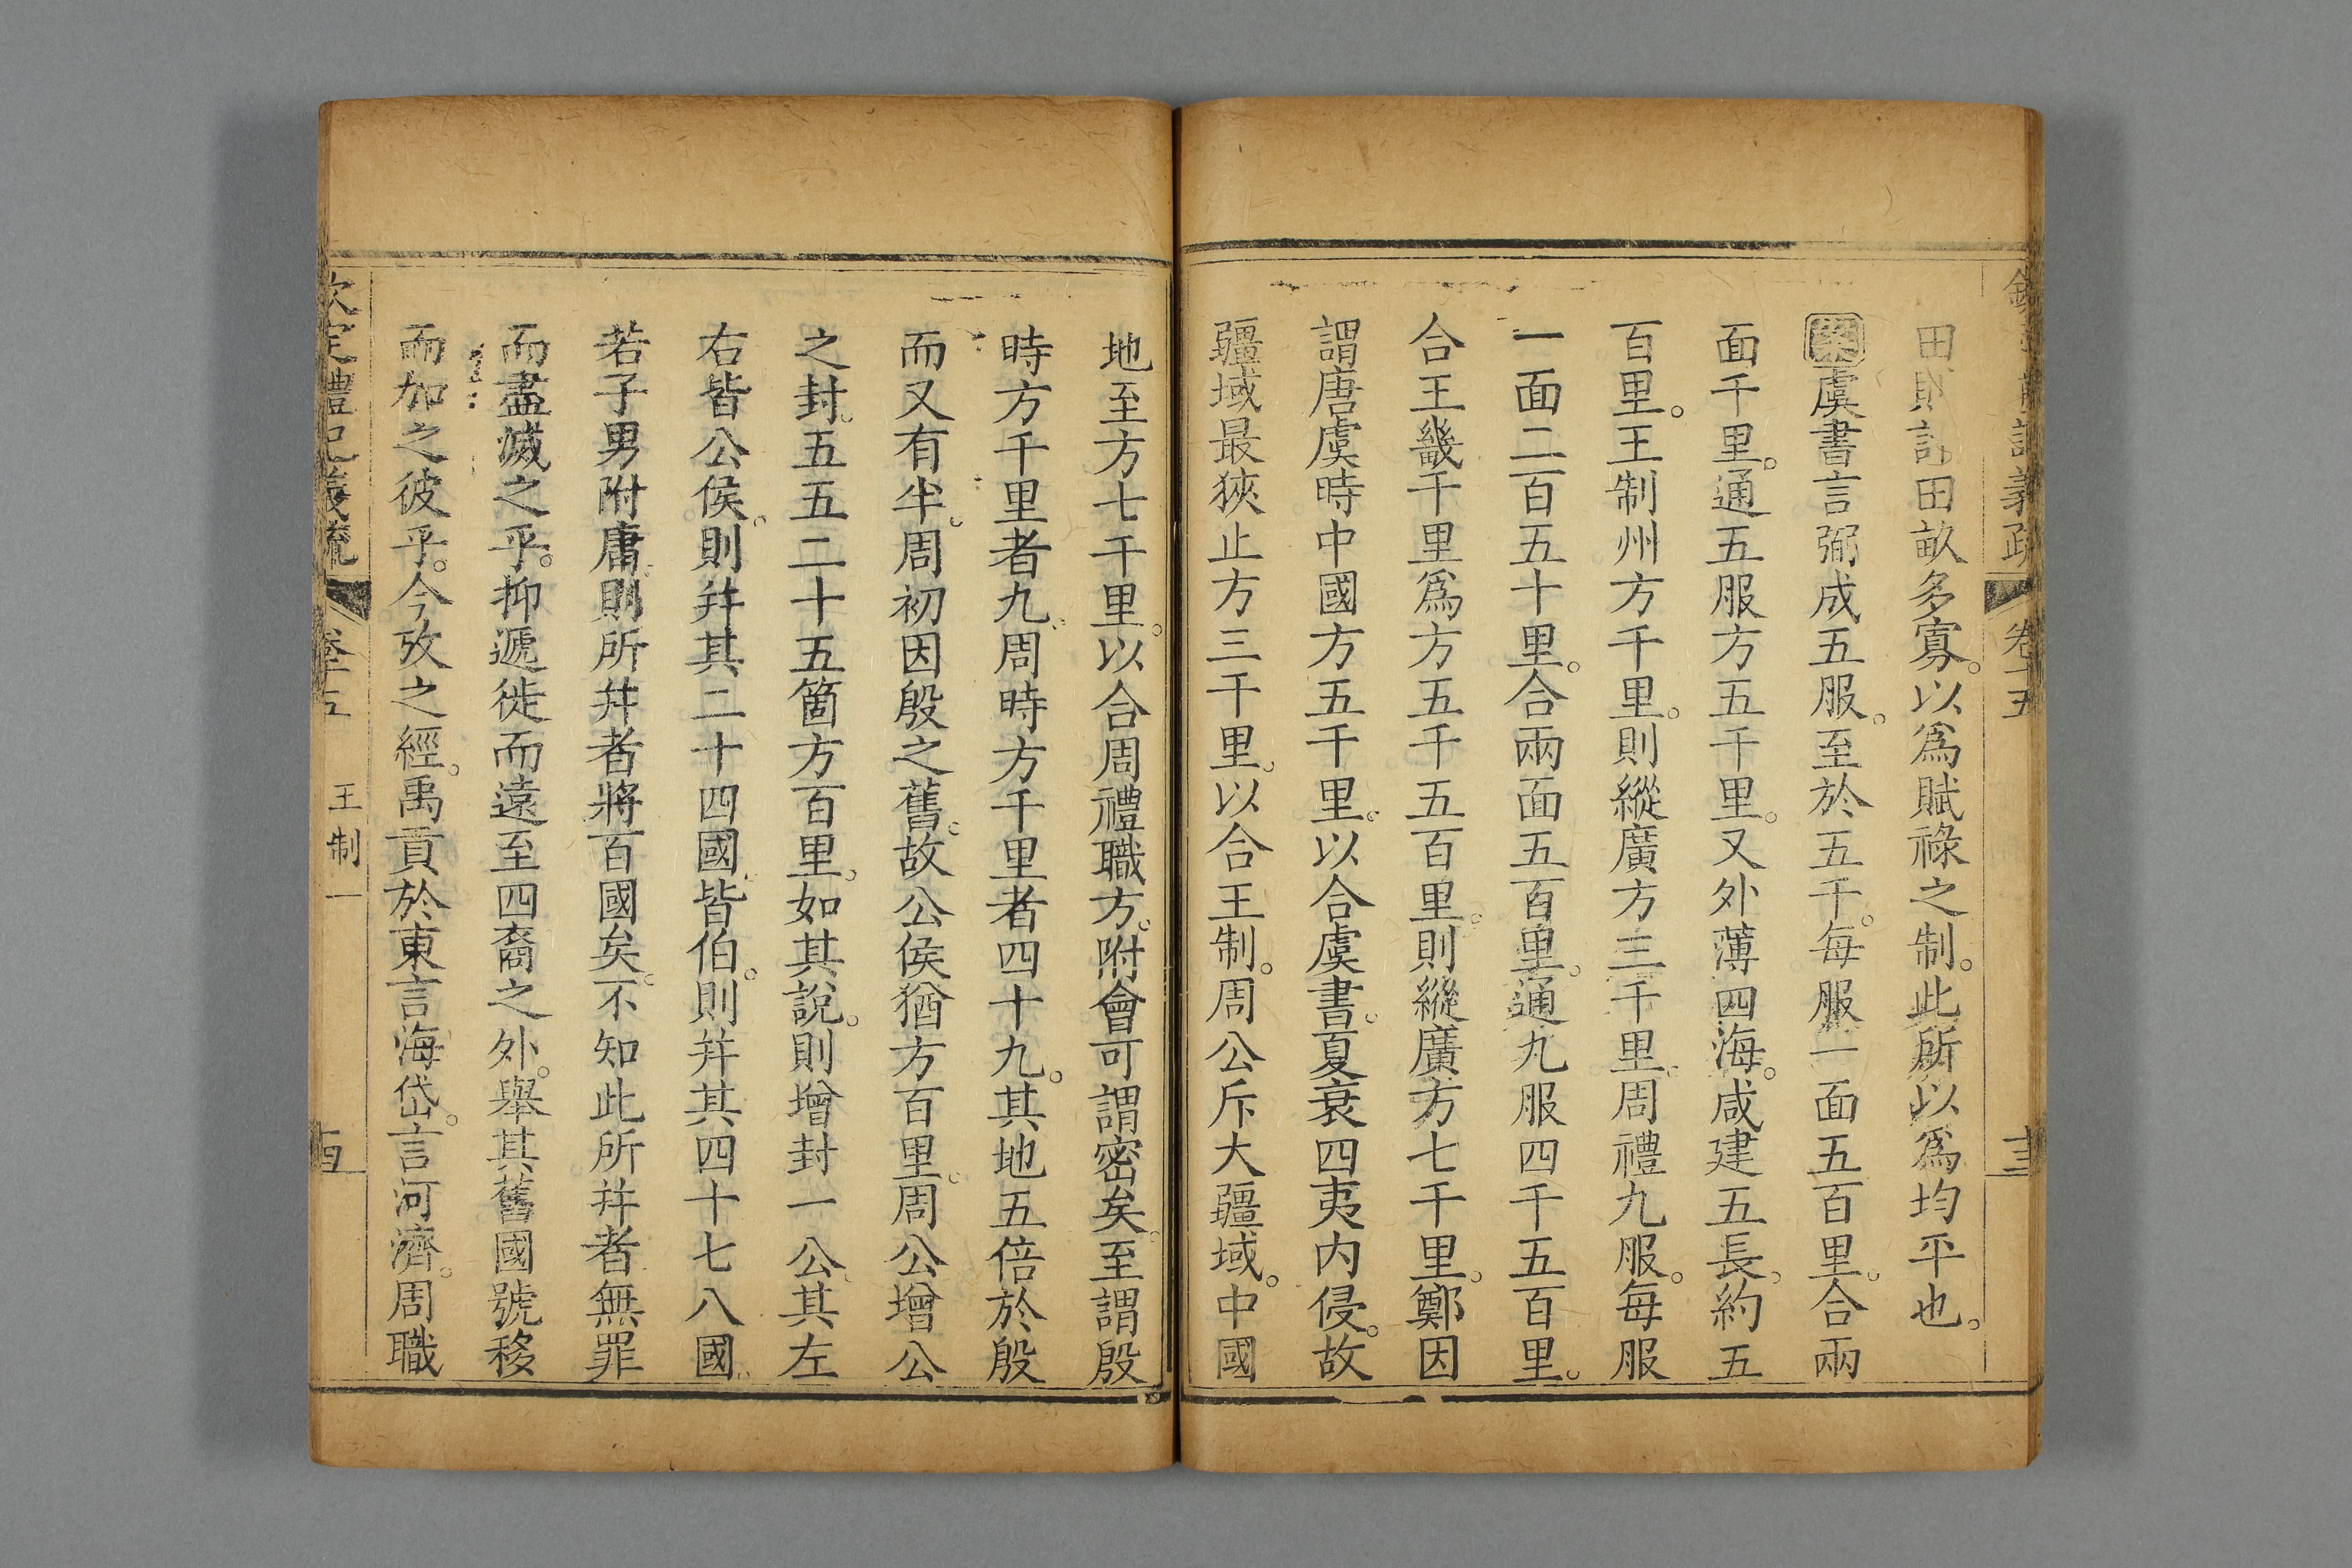 田則計田畝多寡。以爲賦祿之制。此所以爲均平也。
案虞書言弼成五服。至於五千。每服一面五百里。合兩
面千里。通五服方五千里。又外薄四海。咸建五長。約五
百里。王制州方千里。則縱廣方三千里。周禮九服。每服
一面二百五十里。合兩面五百里。通九服四千五百里。
合王畿千里爲方五千五百里。則縱廣方七千里。鄭因
謂唐虞時中國方五千里。以合虞書。夏衰四夷内侵。故
疆域最狹止方三千里。以合王制。周公斥大疆域。中國
地至方七千里。以合周禮職方。附會可謂密矣。至謂殷
時方千里者九。周時方千里者四十九。其地五倍於殷
而又有半。周初因殷之舊。故公侯猶方百里。周公增公
之封。五五二十五箇方百里。如其說。則增封一公。其左
右皆公侯。則幷其二十四國。皆伯。則幷其四十七八國。
若子男附庸。則所幷者將百國矣。不知此所幷者無罪
而盡滅之乎。抑遞徙而遠至四裔之外。舉其舊國號移
而加之彼乎。今攷之經。禹貢於東言海岱。言河濟。周職
欽定禮記義疏 卷十五 王制一